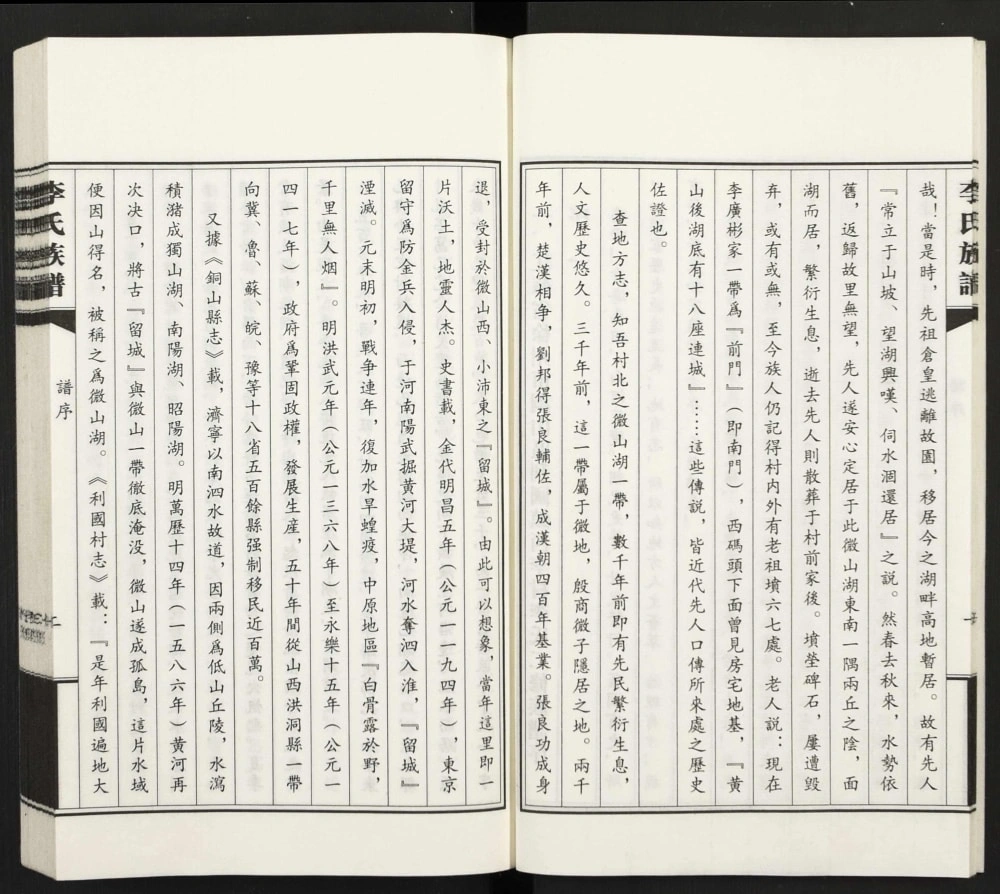 李氏族譜
哉！當是時，先祖倉皇逃離故園，移居今之湖畔高地暫居。故有先人
『常立于山坡、望湖興嘆、伺水涸還居』之說。然春去秋來，水勢依
舊，返歸故里無望，先人遂安心定居于此微山湖東南一隅兩丘之陰，面
湖而居，繁衍生息，逝去先人則散葬于村前家後。墳塋碑石，屢遭毀
弃，或有或無，至今族人仍記得村内外有老祖墳六七處。老人説：現在
李廣彬家一帶爲『前門』（即南門），西碼頭下面曾見房宅地基，『黄
山後湖底有十八座連城』……這些傳説，皆近代先人口傳所來處之歷史
佐證也。
查地方志，知吾村北之微山湖一帶，數千年前即有先民繁衍生息，
人文歷史悠久。三千年前，這一帶屬于微地，殷商微子隱居之地。兩千
年前，楚漢相争，劉邦得張良輔佐，成漢朝四百年基業。張良功成身
退，受封於微山西、小沛東之『留城』。由此可以想象，當年這里即一
片沃土，地靈人杰。史書載，金代明昌五年（公元一一九四年），東京
留守爲防金兵入侵，于河南陽武掘黄河大堤，河水奪泗入淮，『留城』
湮滅。元末明初，戰争連年，復加水旱蝗疫，中原地區『白骨露於野，
千里無人烟』。明洪武元年（公元一三六八年）至永樂十五年（公元一
四一七年），政府爲鞏固政權，發展生産，五十年間從山西洪洞縣一帶
向冀、魯、蘇、皖、豫等十八省五百餘縣强制移民近百萬。
又據《銅山縣志》載，濟寧以南泗水故道，因兩側爲低山丘陵，水瀉
積瀦成獨山湖、南陽湖、昭陽湖。明萬歷十四年（一五八六年）黄河再
次决口，將古『留城』與微山一帶徹底淹没，微山遂成孤島，這片水域
便因山得名，被稱之爲微山湖。《利國村志》載：『是年利國遍地大
李氏族譜
譜序